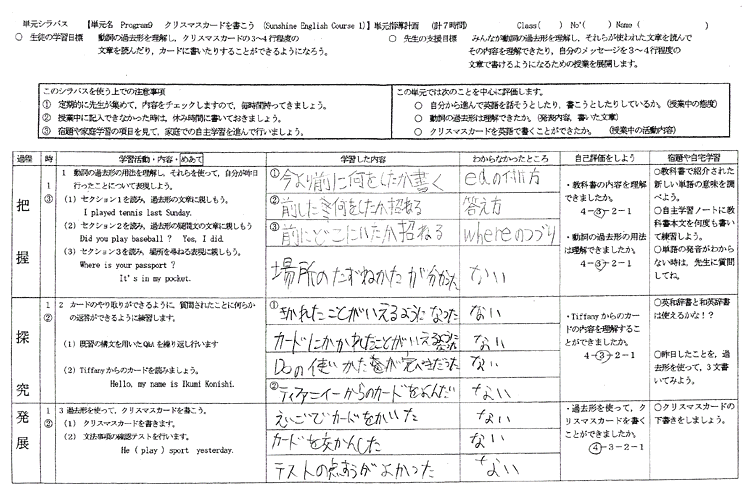 単元シラバス 【単元名 Program9 クリスマスカードを書こう (Sunshine English Course 1)】単元指導計画 (計7時間) Class( ) No'( ) Name ( )
○ 生徒の学習目標 動詞の過去形を理解し、クリスマスカードの3~4行程度の
文章を読んだり、カードに書いたりすることができるようになろう。
○ 先生の支援目標 みんなが動詞の過去形を理解し、それらが使われた文章を読んで
その内容を理解できたり、自分のメッセージを3~4行程度の
文章で書けるようになるための授業を展開します。
このシラバスを使う上での注意事項
① 定期的に先生が集めて、内容をチェックしますので、毎時間持ってきましょう。
② 授業中に記入できなかった時は、休み時間に書いておきましょう。
③ 宿題や家庭学習の項目を見て、家庭での自主学習を進んで行いましょう。
この単元では次のことを中心に評価します。
○ 自分から進んで英語を話そうとしたり、書こうとしたりしているか。(授業中の態度)
○ 動詞の過去形は理解できたか。(発表内容、書いた文章)
○ クリスマスカードを英語で書くことができたか。 (授業中の活動内容)
過程 時 学習活動・内容・めあて 学習した内容 わからなかったところ 自己評価をしよう 宿題や自宅学習
把握
1
③
1 動詞の過去形の用法を理解し、それらを使って、自分が昨日
行ったことについて表現しよう。
(1) セクション1を読み、過去形の文章に親しもう。
I played tennis last Sunday.
(2) セクション2を読み、過去形の疑問文の文章に親しもう。
Did you play baseball ? Yes, I did.
(3) セクション3を読み、場所を尋ねる表現に親しもう。
Where is your passport ?
It's in my pocket.
①今より前に何をしたか書く edの付け方
② 答え方
③前にどこにいたか招ねる whereのつづり
場所のたずねかたが分かった ない
・教科書の内容を理解
できましたか。
4-③-2-1
・動詞の過去形の用法
は理解できましたか。
4-③-2-1
○教科書で紹介された
新しい単語の意味を調
べよう。
○自主学習ノートに教
科書本文を何度も書い
て練習しよう。
○単語の発音がわから
ない時は、先生に質問
してね。
探究
1
②
2 カードのやり取りができるように、質問されたことに何らか
の返答ができるように練習します。
(1) 既習の構文を用いたQ&Aを繰り返し行います
(2) Tiffanyからのカードを読みましょう。
Hello, my name is Ikumi Konishi.
①きかれたことがいえるようになった ない
カードにかかれたことがいえる ない
Doの使いかた ない
②ティファニーからのカードをよんだ ない
・Tiffanyからのカー
ドの内容を理解するこ
とができましたか。
4-③-2-1
○英和辞書と和英辞書
は使えるかな！？
○昨日したことを、過
去形を使って、3文書
いてみよう。
発展
1
②
3 過去形を使って、クリスマスカードを書こう。
(1) クリスマスカードを書きます。
(2) 文法事項の確認テストを行います。
He ( play ) sport yesterday.
えいごでカードをかいた ない
カードを交かんした ない
テストの点すうがよかった ない
・過去形を使って、ク
リスマスカードを書く
ことができましたか。
④-3-2-1
○クリスマスカードの
下書きをしましょう。